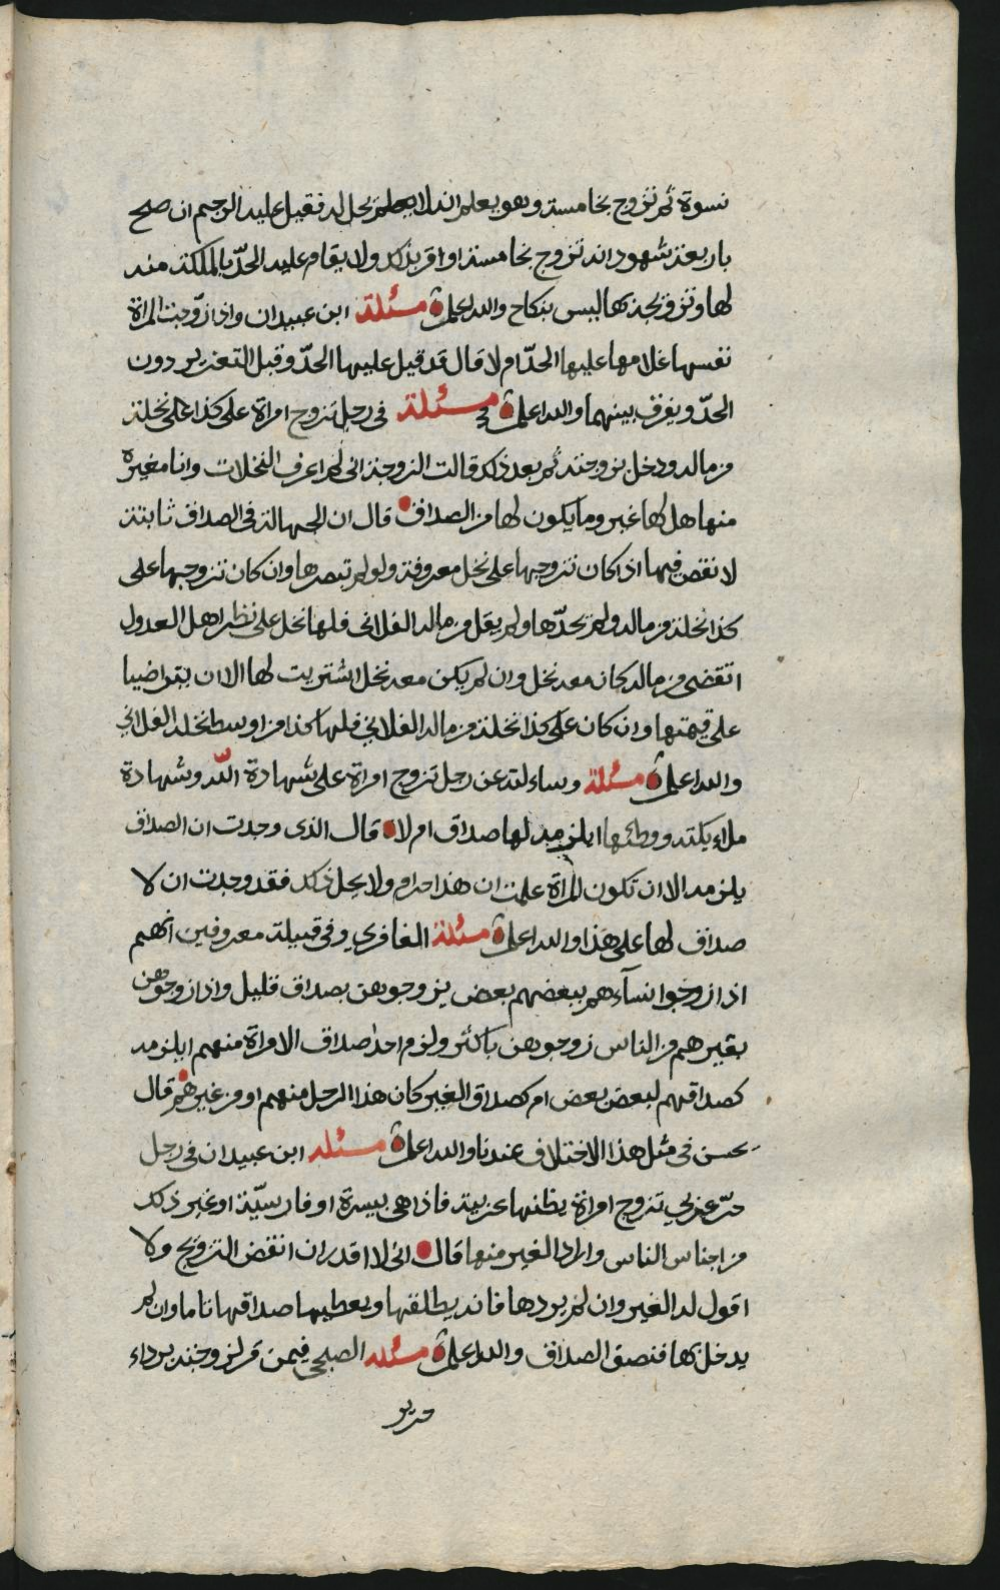 نسوة ثم تزوج بخامسة وهو يعلم انه لا يحل له فقيل عليه الرجم ان صح
باربعة شهود انه تزوج بخامسة او اقر بذلك ولا يقام عليه الحدّ بالملكة منه
لها وتزويجه بها ليس بنكاح والله اعلم مسئلة ابن عبيدان واذا زوّجت المراة
نفسها غلامها عليها الحدّ ام لا قال قد قيل عليها الحدّ وقيل التعزير دون
الحدّ ويفرق بينهما والله اعلم مسئلة في رجل تزوج امراة على كذا على نخلة
من ماله ودخل بزوجته ثم بعد ذلك قالت الزوجة اني لم اعرف النخلات وانا مغيرة
منها هل لها غير وما يكون لها من الصداق قال ان الجهالة في الصداق ثابتة
لا نقض فيها اذا كان تزوجها على نخل معروفة ولو لم تبصرها وان كان تزوجها على
كذا نخلة من ماله ولم يحدّها ولم يقل من ماله الفلاني فلها نخل على نظر اهل العدول
اتقضى من ماله كان معه نخل وان لم يكن معه نخل اشتريت لها الا ان يتراضيا
على قيمتها وان كان على كذا نخلة من ماله الفلاني فلها كذا من اوسط نخله الفلاني
والله اعلم مسئلة وساءلته عن رجل تزوج امراة على شهادة الله وشهادة
ملاءيكته ووطئها ايلزمه لها صداق ام لا قال الذى وجدت ان الصداق
يلزمه الا ان تكون المراة علمت ان هذا حرام ولا يحل ذلك فقد وجدت ان لا
صداق لها على هذا والله اعلم مسئلة الغافري وفي قبيلة معروفين انهم
اذا زوجوا نسآءهم ببعضهم بعض يزوجوهن بصداق قليل واذا زوجوهن
بغيرهم من الناس زوجوهن باكثر ولزم احدا صداق الامراة منهم ايلزمه
كصداقهم لبعض بعض ام كصداق الغير كان هذا الرجل منهم او من غيرهم قال
يحسن في مثل هذا الاختلاف عندنا والله اعلم مسئله ابن عبيدان في رجل
حرّ عربي تزوج امراة يظنها عربية فاذا هي بيسرة او فارسيّة او غير ذلك
من اجناس الناس واراد الغير منها قال اني لا اقدر ان انقض التزويج ولا
اقول له الغير وان لم يردها فانه يطلقها ويعطيها صداقها تاما وان لم
يدخل بها فنصف الصداق والله اعلم مسئله الصبحي فيمن قر لزوجته برداء
حرير